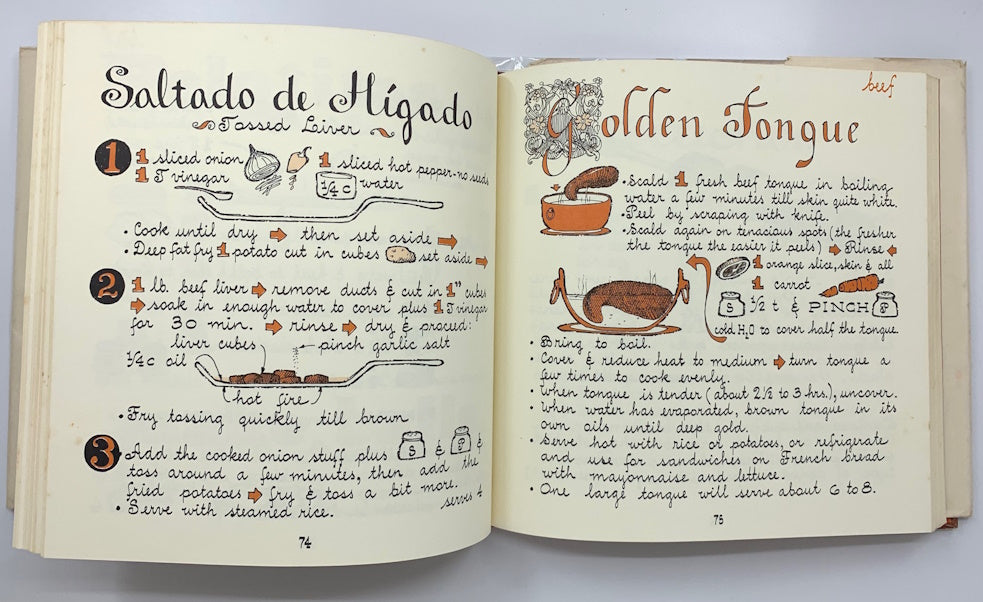 Saltado de Hígado
Tossed Liver
1
1 sliced onion
1 T vinegar
1 sliced hot pepper-no seeds
1/4 c water
• Cook until dry → then set aside →
• Deep fat fry 1 potato cut in cubes set aside →
2
1 lb. beef liver → remove ducts & cut in 1" cubes
→ soak in enough water to cover plus 1 T vinegar
for 30 min. → rinse → dry & proceed:
liver cubes
pinch garlic salt
1/4 c oil
hot fire
• Fry tossing quickly till brown
3
• Add the cooked onion stuff plus S & P &
toss around a few minutes, then add the
fried potatoes → fry & toss a bit more.
• Serve with steamed rice.
serves 4
74
beef
Golden Tongue
• Scald 1 fresh beef tongue in boiling
water a few minutes till skin quite white.
• Peel by scraping with knife.
• Scald again on tenacious spots (the fresher
the tongue the easier it peels) → Rinse
1 orange slice, skin & all
1 carrot
S 1/2 t & PINCH P
cold H2O to cover half the tongue.
• Bring to boil.
• Cover & reduce heat to medium → turn tongue a
few times to cook evenly.
• When tongue is tender (about 2 1/2 to 3 hrs.), uncover.
• When water has evaporated, brown tongue in its
own oils until deep gold.
• Serve hot with rice or potatoes, or refrigerate
and use for sandwiches on French bread
with mayonnaise and lettuce.
• One large tongue will serve about 6 to 8.
75